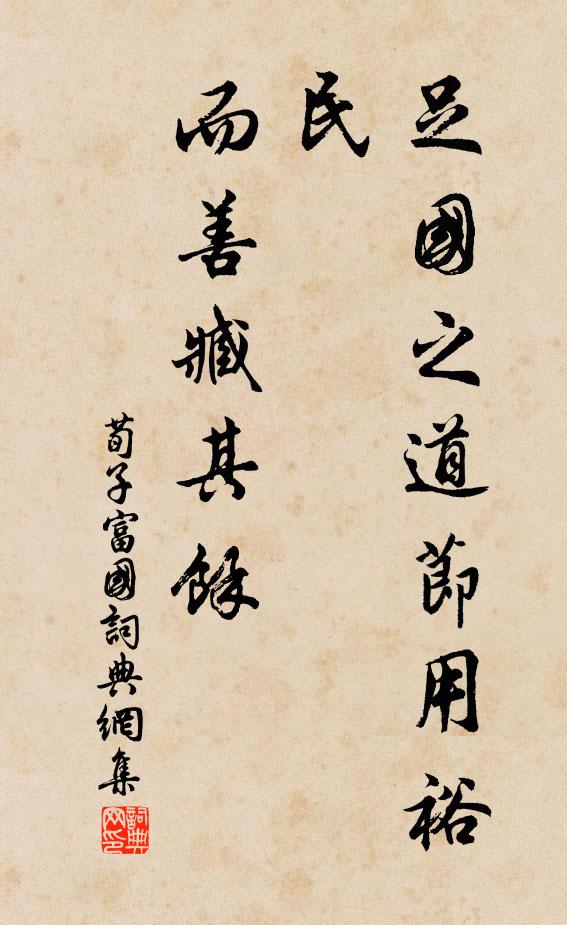 足國之道節用裕
民
而善臧其餘
荀子富國詞典網集
詞典网印